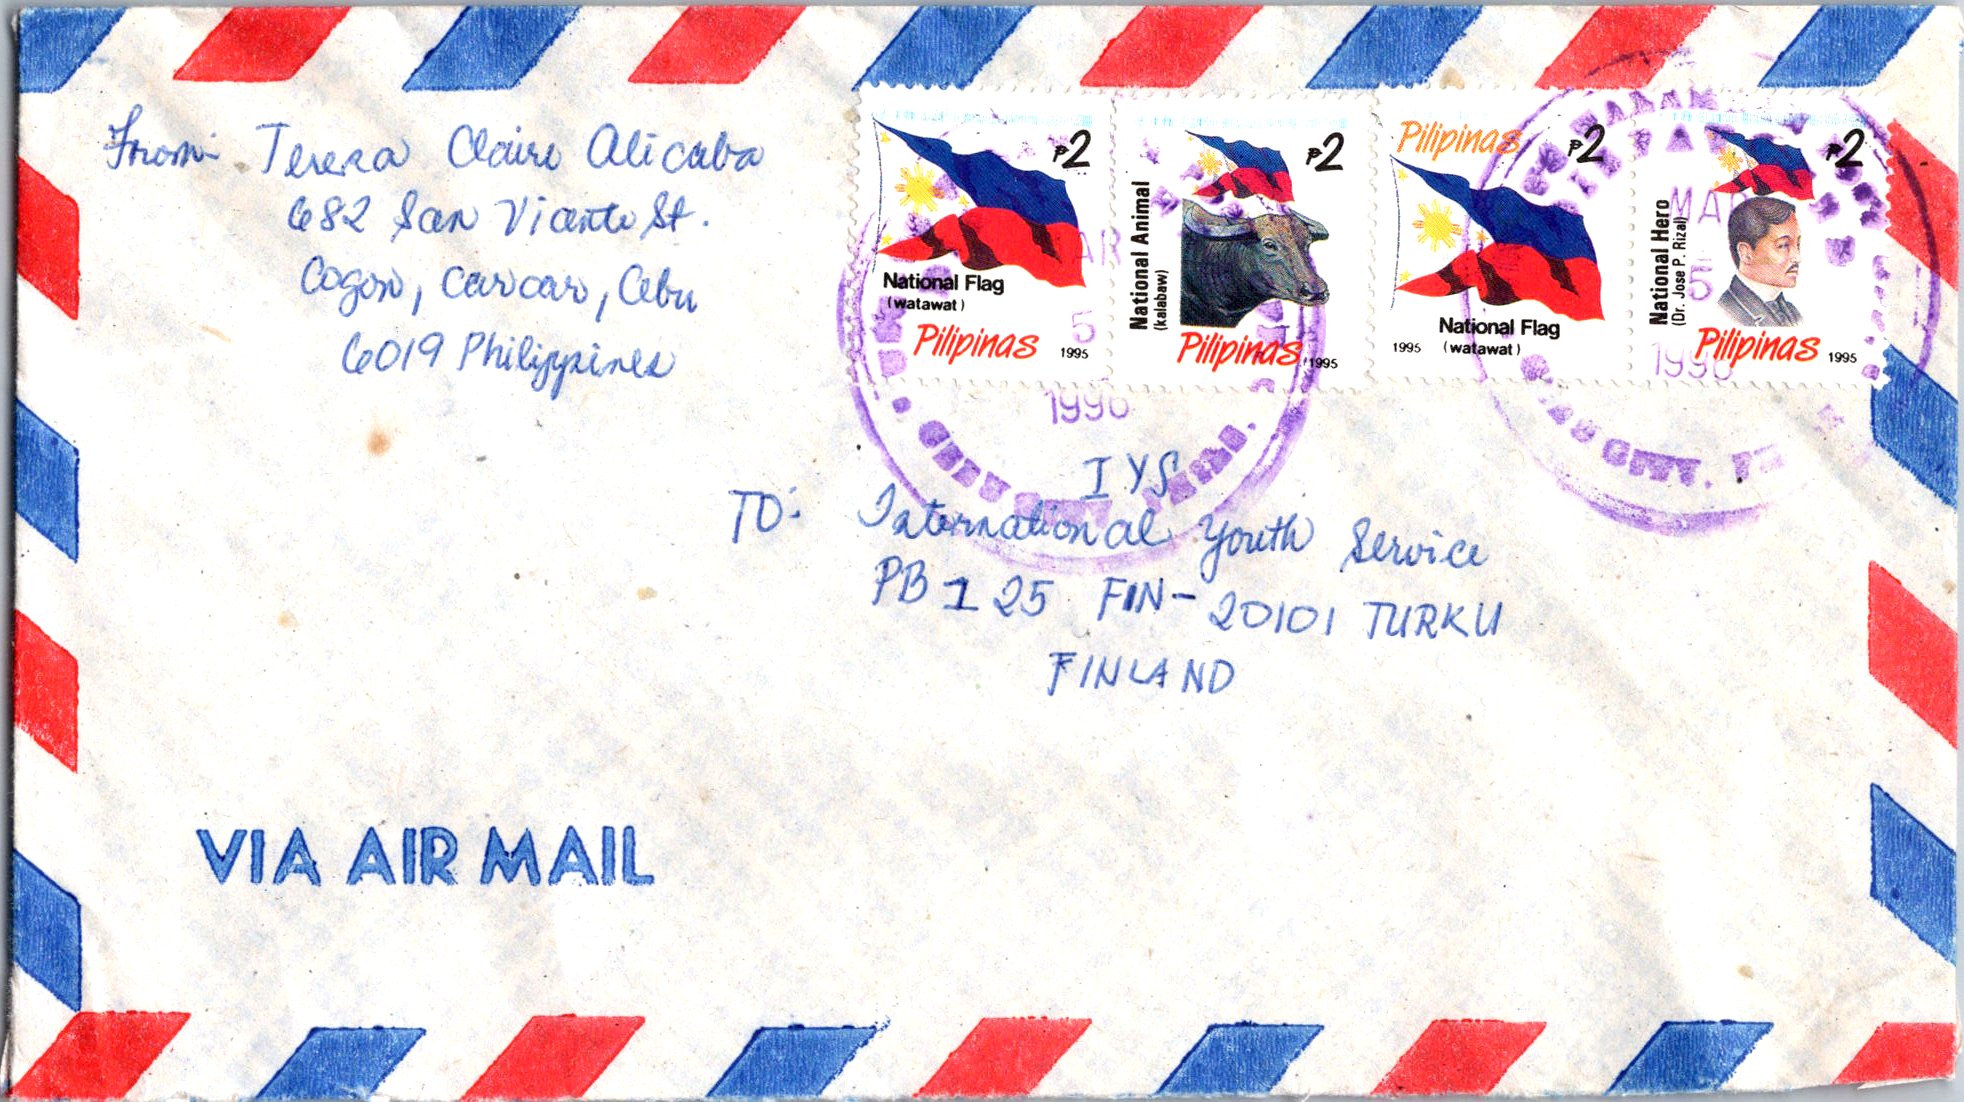 From: Teresa Claire Alicaba
682 San Vicente St.
Cogon, Carcar, Cebu
6019 Philippines
₱2
National Flag
(watawat)
Pilipinas 1995
₱2
National Animal
(kalabaw)
Pilipinas 1995
Pilipinas ₱2
National Flag
1995 (watawat)
₱2
National Hero
(Dr. Jose P. Rizal)
Pilipinas 1995
MAR
5
1996
5
CITY
IYS
TO: International Youth Service
PB 125 FIN-20101 TURKU
FINLAND
VIA AIR MAIL